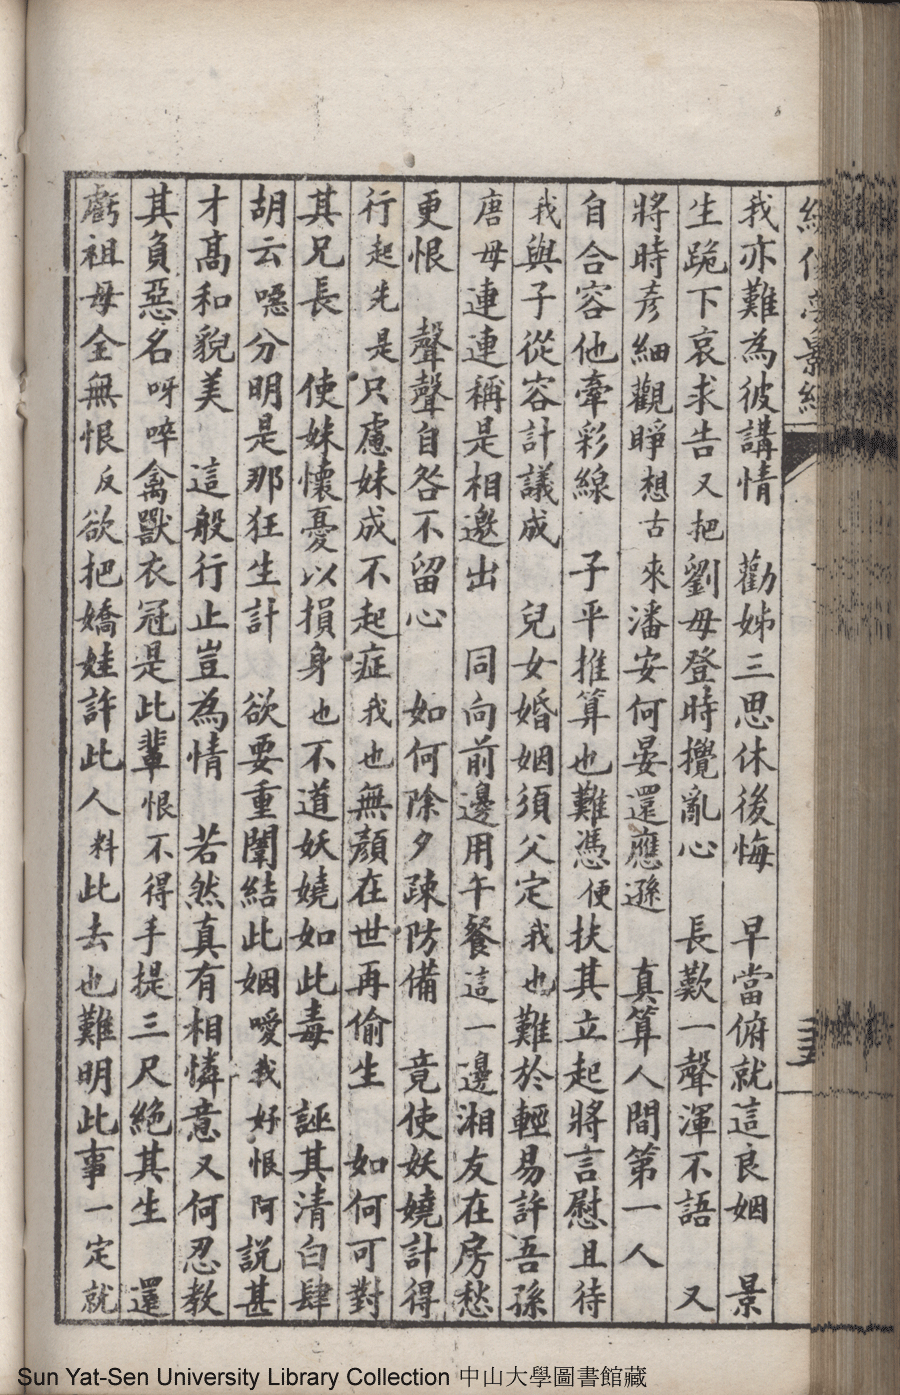 我亦難為彼講情　勸姊三思休後悔　早當俯就這良姻　景
生跪下哀求告又把劉母登時攪亂心　長歎一聲渾不語　又
將時彥細觀睜想古來潘安何晏還應遜　真算人間第一人
自合容他牽彩線　子平推算也難憑便扶其立起將言慰且待
我與子從容計議成　兒女婚姻須父定我也難於輕易許吾孫
唐母連連稱是相邀出　同向前邊用午餐這一邊湘友在房愁
更恨　聲聲自咎不留心　如何除夕疎防備　竟使妖嬈計得
行起先是只慮妹成不起症我也無顏在世再偷生　如何可對
其兄長　使妹懷憂以損身也不道妖嬈如此毒　誣其清白肆
胡云噁分明是那狂生計　欲要重闈結此姻噯我好恨阿說甚
才高和貌美　這般行止豈為情　若然真有相憐意又何忍教
其負惡名呀啐禽獸衣冠是此輩恨不得手提三尺絕其生　還
虧祖母全無恨反欲把嬌娃許此人料此去也難明此事一定就
Sun Yat-Sen University Library Collection 中山大學圖書館藏